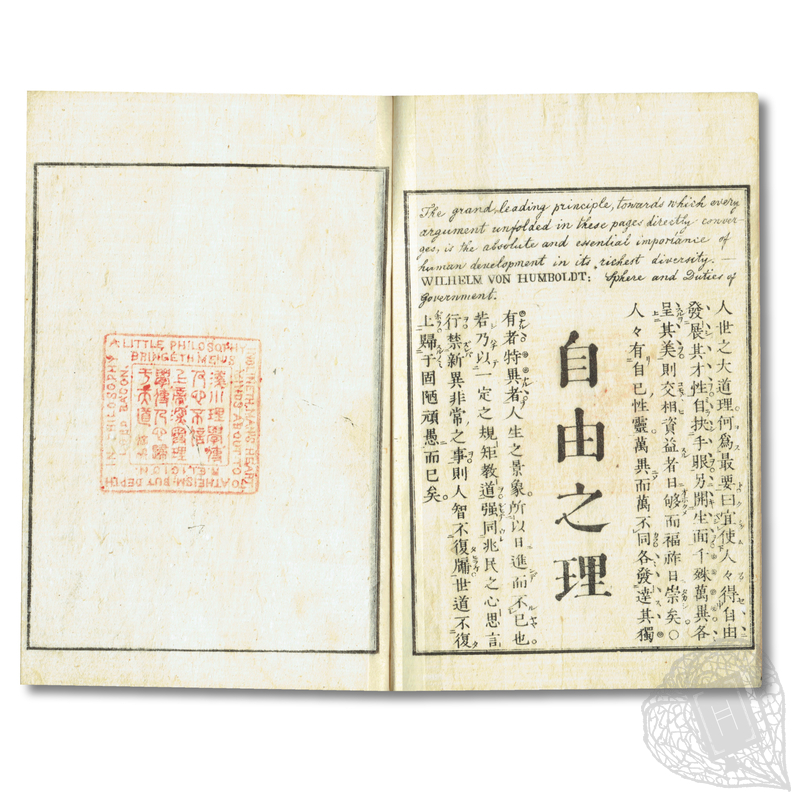 The grand, leading principle, towards which every
argument unfolded in these pages directly conver-
ges, is the absolute and essential importance of
human development in its richest diversity. —
WILHELM VON HUMBOLDT: Sphere and Duties of
Government.
人世之大道理何為最要曰宜使人々得自由
發展其才性自挾手眼另開生面千殊萬異各
呈其美則交相資益者日夥而福祚日崇矣○
人々有自己性靈萬異而萬不同各發達其獨
自由之理
有者特異者人生之景象所以日進而不已也
若乃以一定之規矩教道强同兆民之心思言
行禁新異非常之事則人智不復牖世道不復
上歸于固陋頑愚而已矣。
A LITTLE PHILOSOPH
MAN'S MIND
TO ATHEISM BUT DEPTH
BRINGETH MEN'S
MINDS ABOUT TO
RELIGION